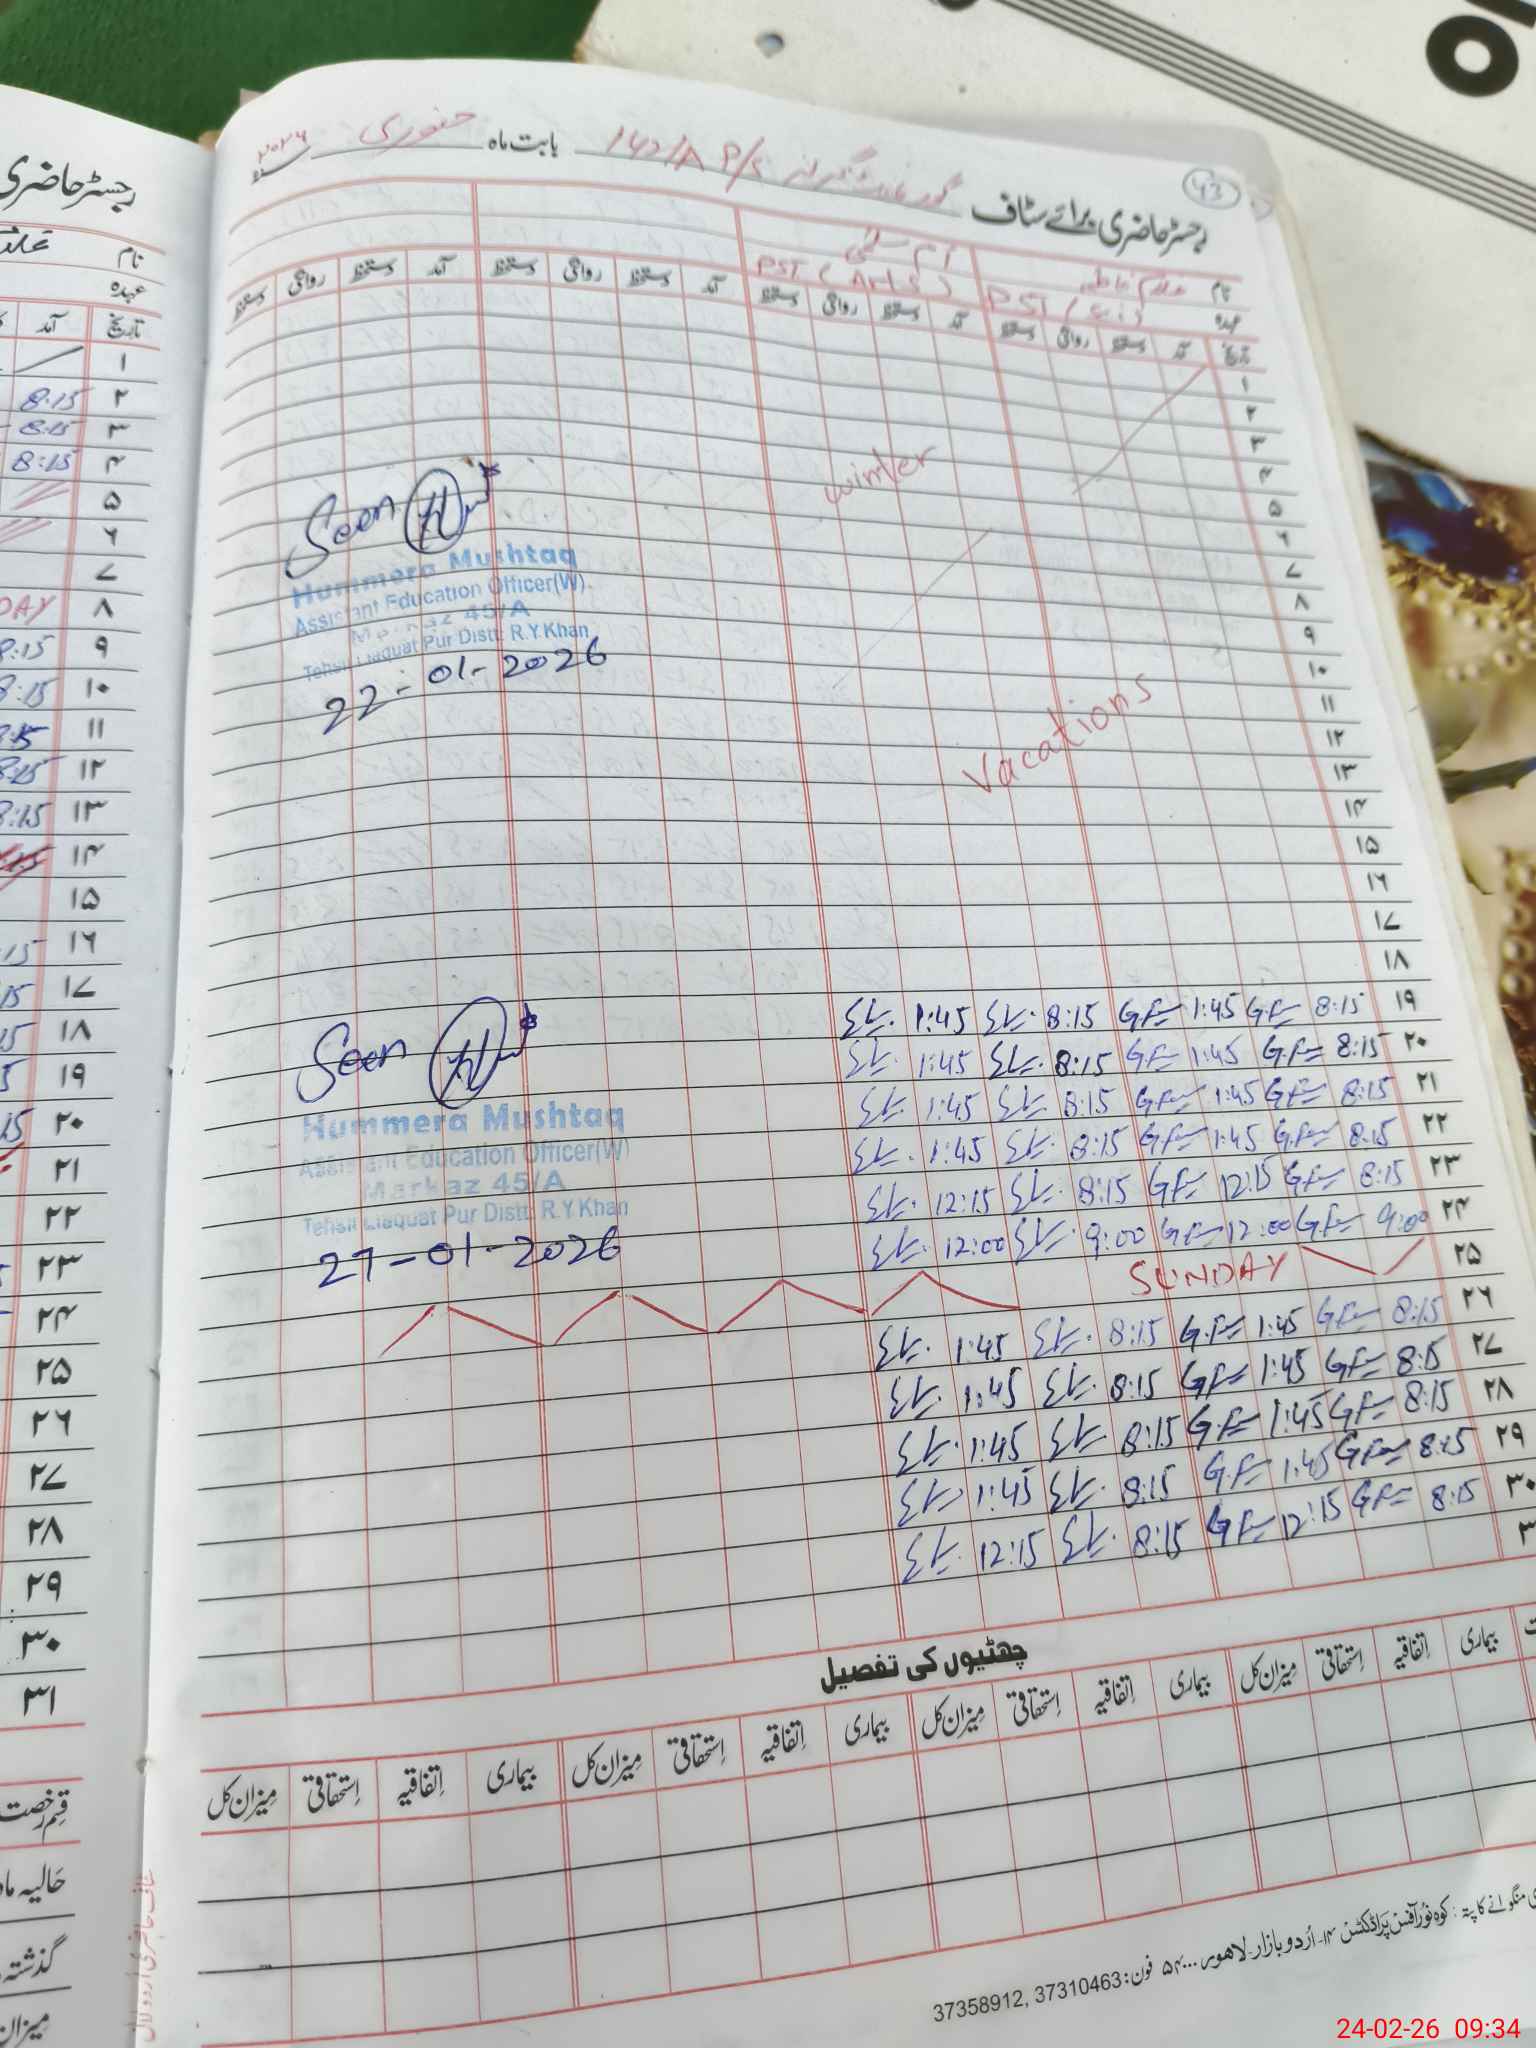 43
رجسٹر حاضری برائے سٹاف گورنمنٹ گرلز P/S 142/A بابت ماہ جنوری ۲۰۲۶
نام ام سلمیٰ
عہدہ PST (Arts) PST
تاریخ آمد دستخط روانگی دستخط آمد دستخط روانگی دستخط آمد دستخط روانگی دستخط آمد دستخط روانگی دستخط
۱
۲
۳
۴
winter
۵
۶
۷
۸
۹
۱۰
۱۱
Vacations
۱۲
۱۳
۱۴
۱۵
۱۶
۱۷
۱۸
۱۹ 8:15 G.F 1:45 G.F 8:15 1:45
۲۰ 8:15 G.F 1:45 G.F 8:15 1:45
۲۱ 8:15 G.F 1:45 G.F 8:15 1:45
۲۲ 8:15 G.F 1:45 G.F 8:15 1:45
۲۳ 8:15 G.F 12:15 G.F 8:15 12:15
۲۴ 9:00 G.F 12:00 G.F 9:00 12:00
۲۵ SUNDAY
۲۶ 8:15 G.F 1:45 G.F 8:15 1:45
۲۷ 8:15 G.F 1:45 G.F 8:15 1:45
۲۸ 8:15 G.F 1:45 G.F 8:15 1:45
۲۹ 8:15 G.F 1:45 G.F 8:15 1:45
۳۰ 8:15 G.F 12:15 G.F 8:15 12:15
Seen
Hummera Mushtaq
Assistant Education Officer(W)
Markaz 45/A
Tehsil Liaquat Pur Distt: R.Y.Khan
22-01-2026
Seen
Hummera Mushtaq
Assistant Education Officer(W)
Markaz 45/A
Tehsil Liaquat Pur Distt: R.Y.Khan
27-01-2026
چھٹیوں کی تفصیل
بیماری اتفاقیہ استحقاقی میزان کل بیماری اتفاقیہ استحقاقی میزان کل بیماری اتفاقیہ استحقاقی میزان کل بیماری اتفاقیہ استحقاقی میزان کل
منگوانے کا پتہ: کوہ نور آفس پراڈکٹس ۱۴- اردو بازار- لاہور ۵۴۰۰۰ فون: 37310463 ,37358912
رجسٹر حاضری
نام
عہدہ
تاریخ آمد
۱
۲ 8:15
۳ 8:15
۴ 8:15
۵
۶
۷
۸ DAY
۹ 8:15
۱۰ 8:15
۱۱ 8:15
۱۲ 8:15
۱۳ 8:15
۱۴
۱۵
۱۶ :15
۱۷ 15
۱۸ 15
۱۹ 5
۲۰ 15
۲۱
۲۲
۲۳
۲۴
۲۵
۲۶
۲۷
۲۸
۲۹
۳۰
۳۱
قسم رخصت
حالیہ ماہ
گذشتہ
میزان
24-02-26 09:34